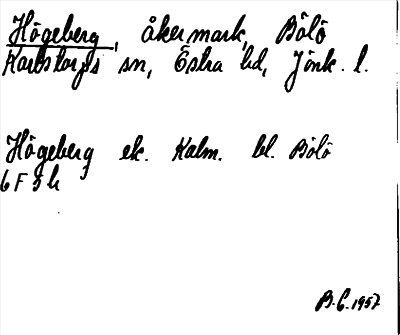 Högeberg, åkermark, Bölö
Karlstorps sn, Östra hd, Jönk. l.
Högeberg ek. Kalm. bl. Bölö
6F5h
B.C. 1957